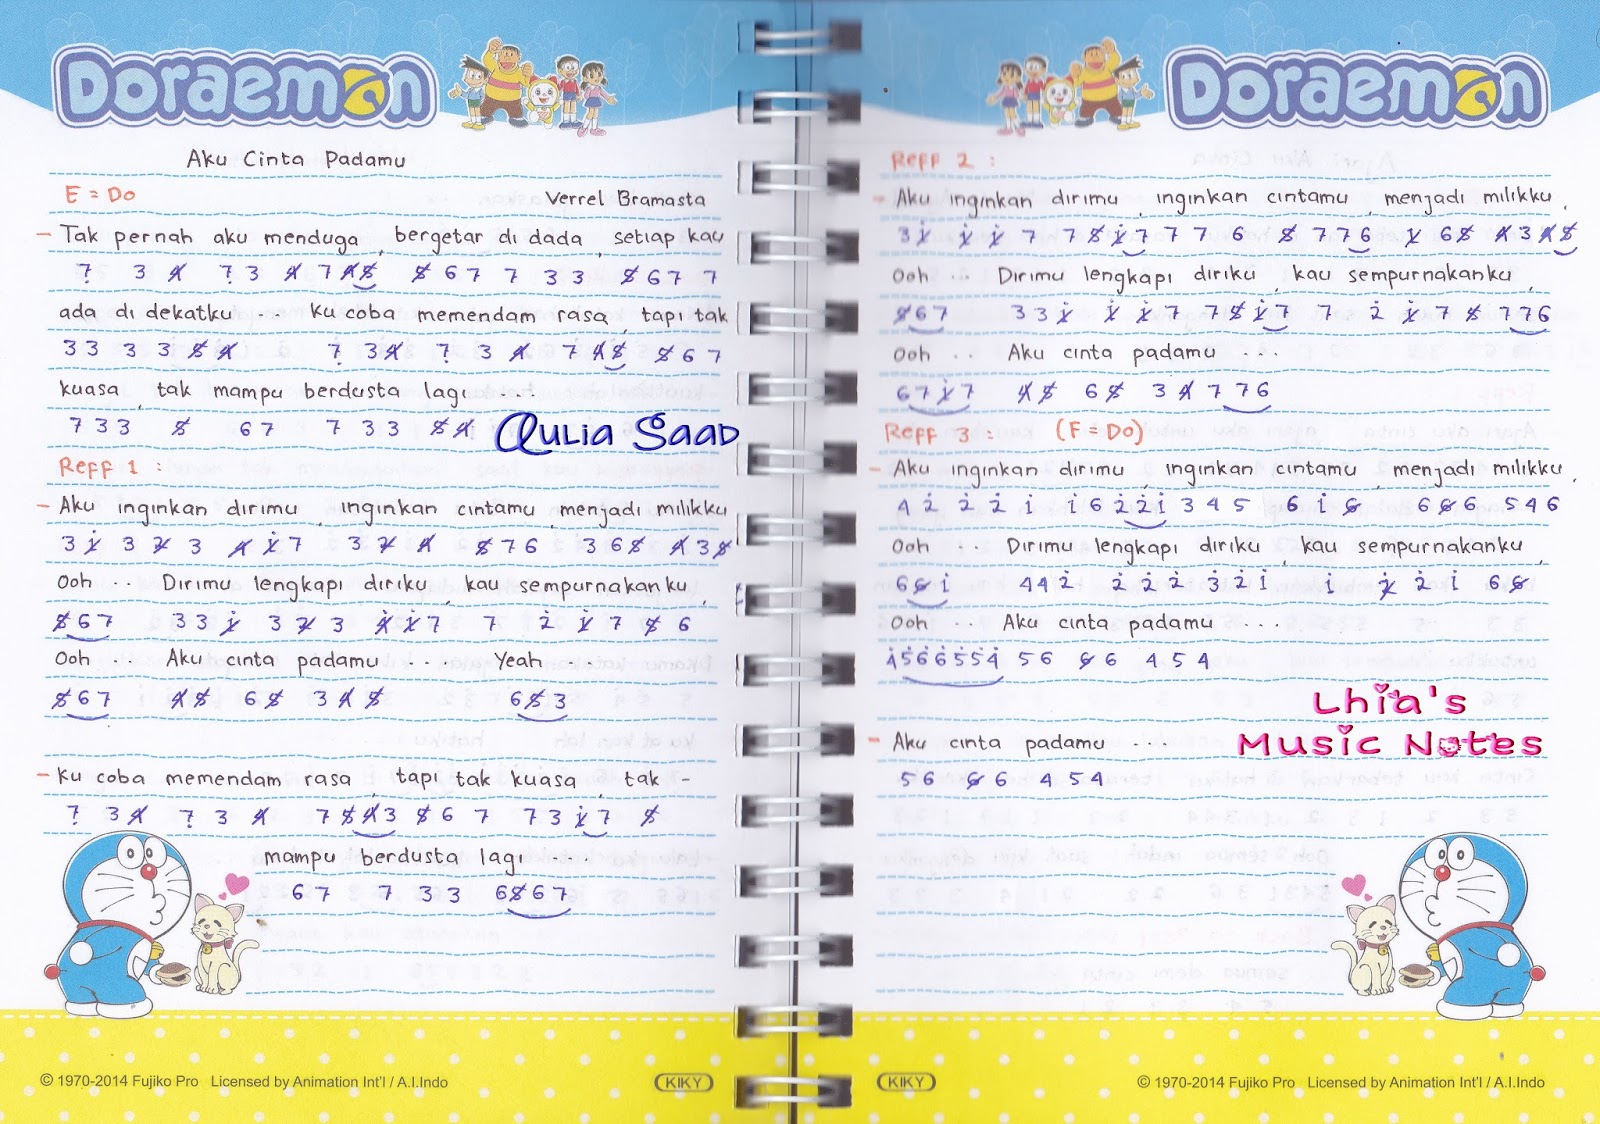 Doraemon
Aku Cinta Padamu
E = Do
Verrel Bramasta
- Tak pernah aku menduga, bergetar di dada, setiap kau
7̣ 3 4̸ 7̣ 3 4̸ 7 4̸ 5̸ 5̸ 6 7 7 3 3 5̸ 6 7 7
ada di dekatku ... Ku coba memendam rasa, tapi tak
3 3 3 3 5̸ 4̸ 7̣ 3 4̸ 7̣ 3 4̸ 7 4̸ 5̸ 5̸ 6 7
kuasa, tak mampu berdusta lagi ...
7 3 3 5̸ 6 7 7 3 3 5̸ 4̸
Aulia Saad
Reff 1 :
- Aku inginkan dirimu, inginkan cintamu, menjadi milikku
3 1̸̇ 3 2̸ 3 4̸ 1̸̇ 7 3 2̸ 4̸ 5̸ 7 6 3 6 5̸ 4̸ 3 5̸
Ooh .. Dirimu lengkapi diriku, kau sempurnakanku,
5̸ 6 7 3 3 1̸̇ 3 2̸ 3 4̸ 1̸̇ 7 7 2̇ 1̸̇ 7 5̸ 6
Ooh .. Aku cinta padamu .. Yeah ..
5̸ 6 7 4̸ 5̸ 6 5̸ 3 4̸ 5̸ 6 5̸ 3
- Ku coba memendam rasa, tapi tak kuasa, tak -
7̣ 3 4̸ 7̣ 3 4̸ 7 5̸ 4̸ 3 5̸ 6 7 7 3 1̸̇ 7 5̸
mampu berdusta lagi ....
6 7 7 3 3 6 5̸ 6 7
© 1970-2014 Fujiko Pro Licensed by Animation Int'l / A.I.Indo
KIKY
Doraemon
Reff 2 :
- Aku inginkan dirimu, inginkan cintamu, menjadi milikku,
3 1̸̇ 1̸̇ 1̸̇ 7 7 5̸ 1̸̇ 7 7 7 6 5̸ 7 7 6 1̸ 6 5̸ 4̸ 3 4̸ 5̸
Ooh .. Dirimu lengkapi diriku, kau sempurnakanku,
5̸ 6 7 3 3 1̸̇ 1̸̇ 1̸̇ 7 7 5̸ 1̸̇ 7 7 2̇ 1̸̇ 7 5̸ 7 7 6
Ooh .. Aku cinta padamu ...
6 7 1̸̇ 7 4̸ 5̸ 6 5̸ 3 4̸ 7 7 6
Reff 3 : (F = Do)
- Aku inginkan dirimu, inginkan cintamu, menjadi milikku,
4 2̇ 2̇ 2̇ 1̇ 1̇ 6 2̇ 2̇ 1̇ 3 4 5 6 1̇ 6̸ 6 6̸ 6 5 4 6
Ooh .. Dirimu lengkapi diriku, kau sempurnakanku,
6 6̸ 1̇ 4 4 2̇ 2̇ 2̇ 2̇ 3̇ 2̇ 1̇ 1̇ 2̸̇ 2̇ 1̇ 6 6̸
Ooh .. Aku cinta padamu ...
4̇ 5̇ 6̇ 6̇ 5̇ 5̇ 4̇ 5 6 6̸ 6 4 5 4
Lhia's
Music Notes
- Aku cinta padamu ...
5 6 6̸ 6 4 5 4
KIKY
© 1970-2014 Fujiko Pro Licensed by Animation Int'l / A.I.Indo